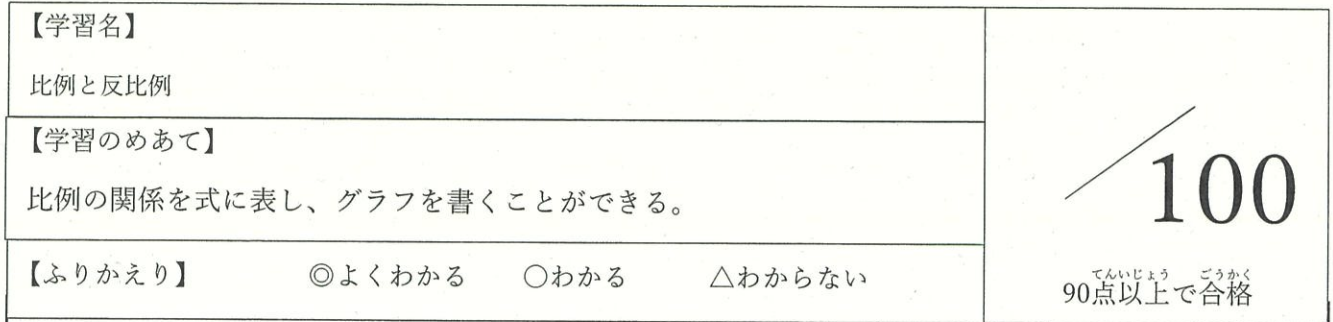 【学習名】
比例と反比例
【学習のめあて】
比例の関係を式に表し、グラフを書くことができる。
【ふりかえり】 ◎よくわかる ○わかる △わからない
／100
てんいじょう ごうかく
90点以上で合格